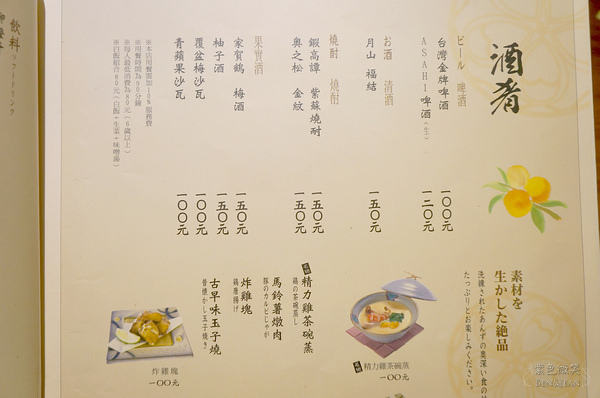 酒肴
ビール　啤酒
台灣金牌啤酒　一〇〇元
ASAHI啤酒(生)　一二〇元
お酒　清酒
月山　福結　一五〇元
燒酎　燒酎
鍛高譚　紫蘇燒酎　一五〇元
奥之松　金紋　一五〇元
果實酒
家賀鶴　梅酒　一五〇元
柚子酒　一五〇元
覆盆梅沙瓦　一〇〇元
青蘋果沙瓦　一〇〇元
※本店用餐需加10%服務費
※用餐時間為90分鐘
※每人最低消費為80元(6歲以上)
※白飯組合80元(白飯+生菜+味噌湯)
飲料 ソフトドリンク
素材を
生かした絶品
洗練されたあんずの奥深い食の
たっぷりとお楽しみください。
精力雞茶碗蒸
鶏の茶碗蒸し
馬鈴薯燉肉
豚のカルビじゃが
炸雞塊
鶏唐揚げ
古早味玉子燒
昔懐かし玉子焼き
精力雞茶碗蒸
一〇〇元
炸雞塊
一〇〇元
紫色微笑
BENJEAN